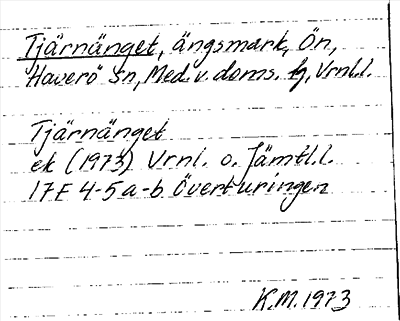 Tjärnänget, ängsmark, Ön,
Haverö sn, Med. v. doms. tg, Vrnl.l.
Tjärnänget
ek (1973) Vrnl. o. Jämtl.l.
17F 4-5 a-b Överturingen
K.M. 1973